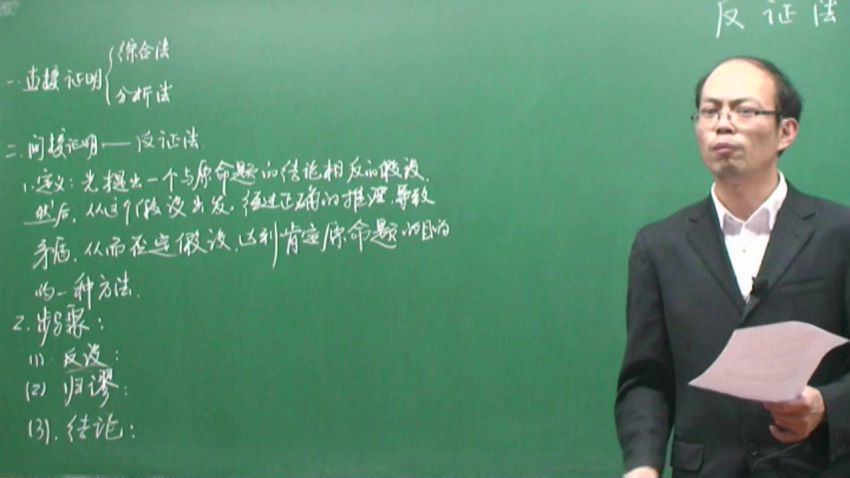 反证法
一.直接证明{综合法
分析法
二.间接证明——反证法.
1.定义:先提出一个与原命题的结论相反的假设.
然后,从这个假设出发.经过正确的推理.导致
矛盾,从而否定假设,达到肯定原命题的目的
的一种方法.
2.步骤:
(1) 反设:
(2) 归谬:
(3).结论: